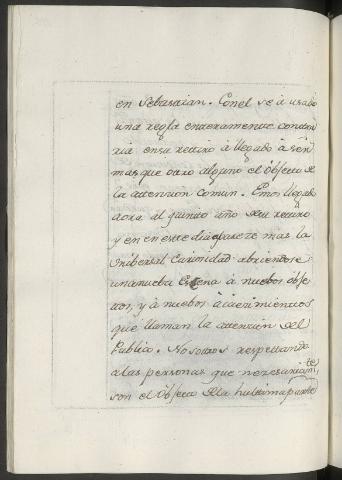 en Sebastian. Con el se à usado
una regla enteramente contra
ria en su retiro à llegado à ser
mas que otro alguno el Objeto de
la attencion comun. Emos llegado
aora al quinto año de su retiro
y en este dia parece mas la
Unibersal Curiosidad abriendose
una nueba Escena à nuebos obje
tos, y à nuebos acaecimientos
que llaman la attencion del
Publico. Nosotros respettando
a las personas que nezesariam,te
son el Objeto de la hultima parte